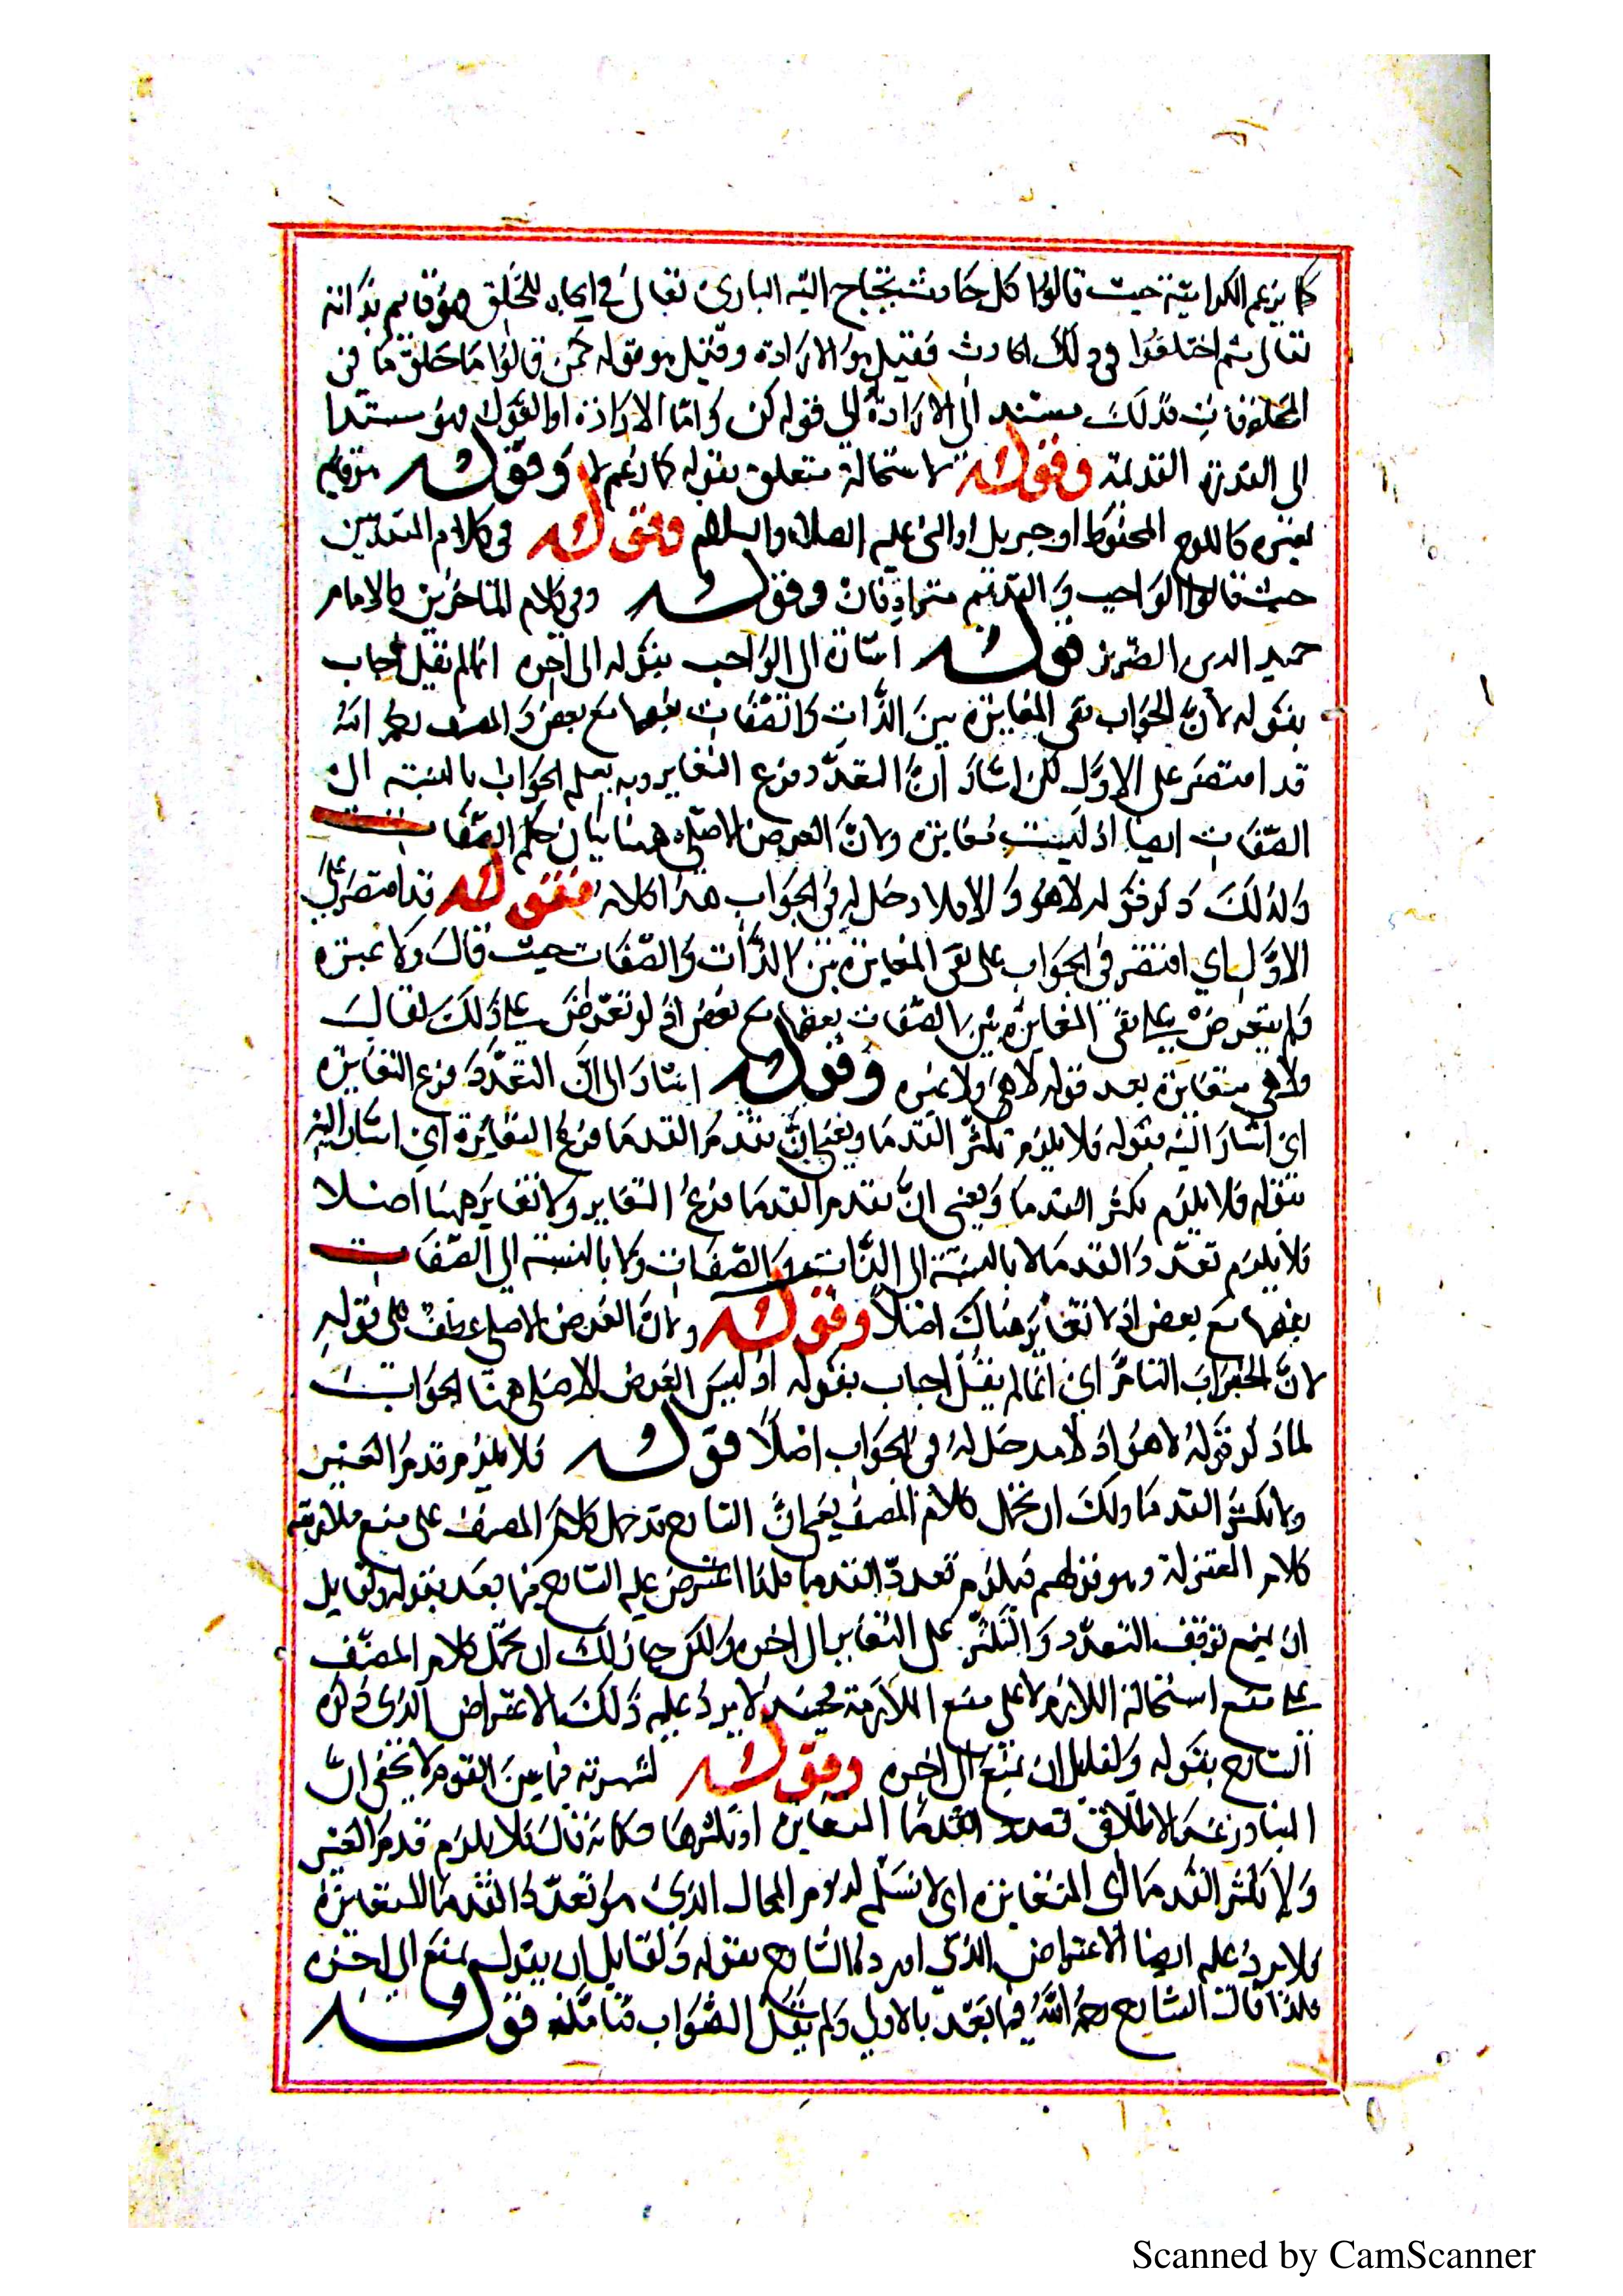 كما يزعم الكرامية حيث قالوا كل حادث يحتاج اليه الباري تعالى في ايجاد الخلق فهو قايم بذاته
تعالى ثم اختلفوا في ذلك الحادث فقيل هو الارادة وقيل هو قوله كن قالوا ما خلق ما من
المخلوقات فذلك مستند الى الارادة الى قوله كن واما الارادة او القول فهو مستند
الى القدرة القديمة وقوله لاستحالة متعلق بقوله كما زعم وقوله من قايم
بغيره كاللوح المحفوظ او جبريل او النبي عليه الصلاة والسلام وقوله في كلام المتقدمين
حيث قالوا الواجب والقديم مترادفان وقوله وفي كلام المتاخرين كالامام
حميد الدين الضرير قوله اشارة الى الجواب بقوله الى اخره انما لم يقل اجاب
بقوله لان الجواب نفي المغايرة بين الذات والصفات بعضها مع بعض والمصنف رحمه الله
قد اقتصر على الاول لكن اشار ان التعدد فرع التغاير وبه يعلم الجواب بالنسبة الى
الصفات ايضا اذ ليست متغايرة ولان الغرض الاصلي ههنا بيان حكم الصفات
ولذلك ذكر قوله لا هو والا فلا دخل له في الجواب هذا كلامه فقوله قد اقتصر على
الاول اي اقتصر في الجواب على نفي المغايرة بين الذات والصفات حيث قال ولا غيره
فلم يتعرض على نفي المغايرة بين الصفات بعضها مع بعض اذ لو تعرض على ذلك لقال
ولا هي متغايرة بعد قوله لا هي ولا غيره وقوله اشار الى ان التعدد فرع التغايرة
اي اشار اليه بقوله فلا يلزم تكثر القدما ويعني ان تقدم القدما فرع التغايرة اي اشار اليه
بقوله فلا يلزم تكثر القدما ويعني ان تقدم القدما فرع التغاير ولا تغاير ههنا اصلا
فلا يلزم تعدد القدما لا بالنسبة الى الذات والصفات ولا بالنسبة الى الصفات
بعضها مع بعض اذ لا تغاير هناك اصلا وقوله ولان الغرض الاصلي عطف على قوله
لان الجواب التام اي انما لم يقل اجاب بقوله اذ ليس الغرض الاصلي ههنا الجواب
لما ذكر قوله لا هو اذ لا مدخل له في الجواب اصلا قوله فلا يلزم قدم الغير
ولا تكثر القدما ولك ان تحمل كلام المصنف يعني ان الشارح قد حمل كلام المصنف على منع ملازمة
كلام المعتزلة وهو قولهم فيلزم تعدد القدما فلذا اعترض عليه الشارح فيما بعد بقوله ولقايل
ان يمنع توقف التعدد والتكثر على التغاير الى اخره ولكن جاز لك ان تحمل كلام المصنف
على منع استحالة اللازم لا على منع الملازمة فحينئذ لا يرد عليه ذلك الاعتراض الذي ذكره
الشارح بقوله ولقايل ان يمنع الى اخره وقوله لشهرته فيما بين القوم لا يخفى ان
المتبادر عند الاطلاق تعدد القدما المتغايره او تكثرها فكانه قال فلا يلزم قدم الغير
ولا تكثر القدما اي المتغايرة اي لا نسلم لزوم المحال الذي هو تعدد القدما المتغايرة
فلا يرد عليه ايضا الاعتراض الذي اورده الشارح بقوله ولقايل ان يقول يمنع الى اخره
فلذا قال الشارح رحمه الله فيما بعد بالاولى ولم يقل الصواب فتامله قوله
Scanned by CamScanner